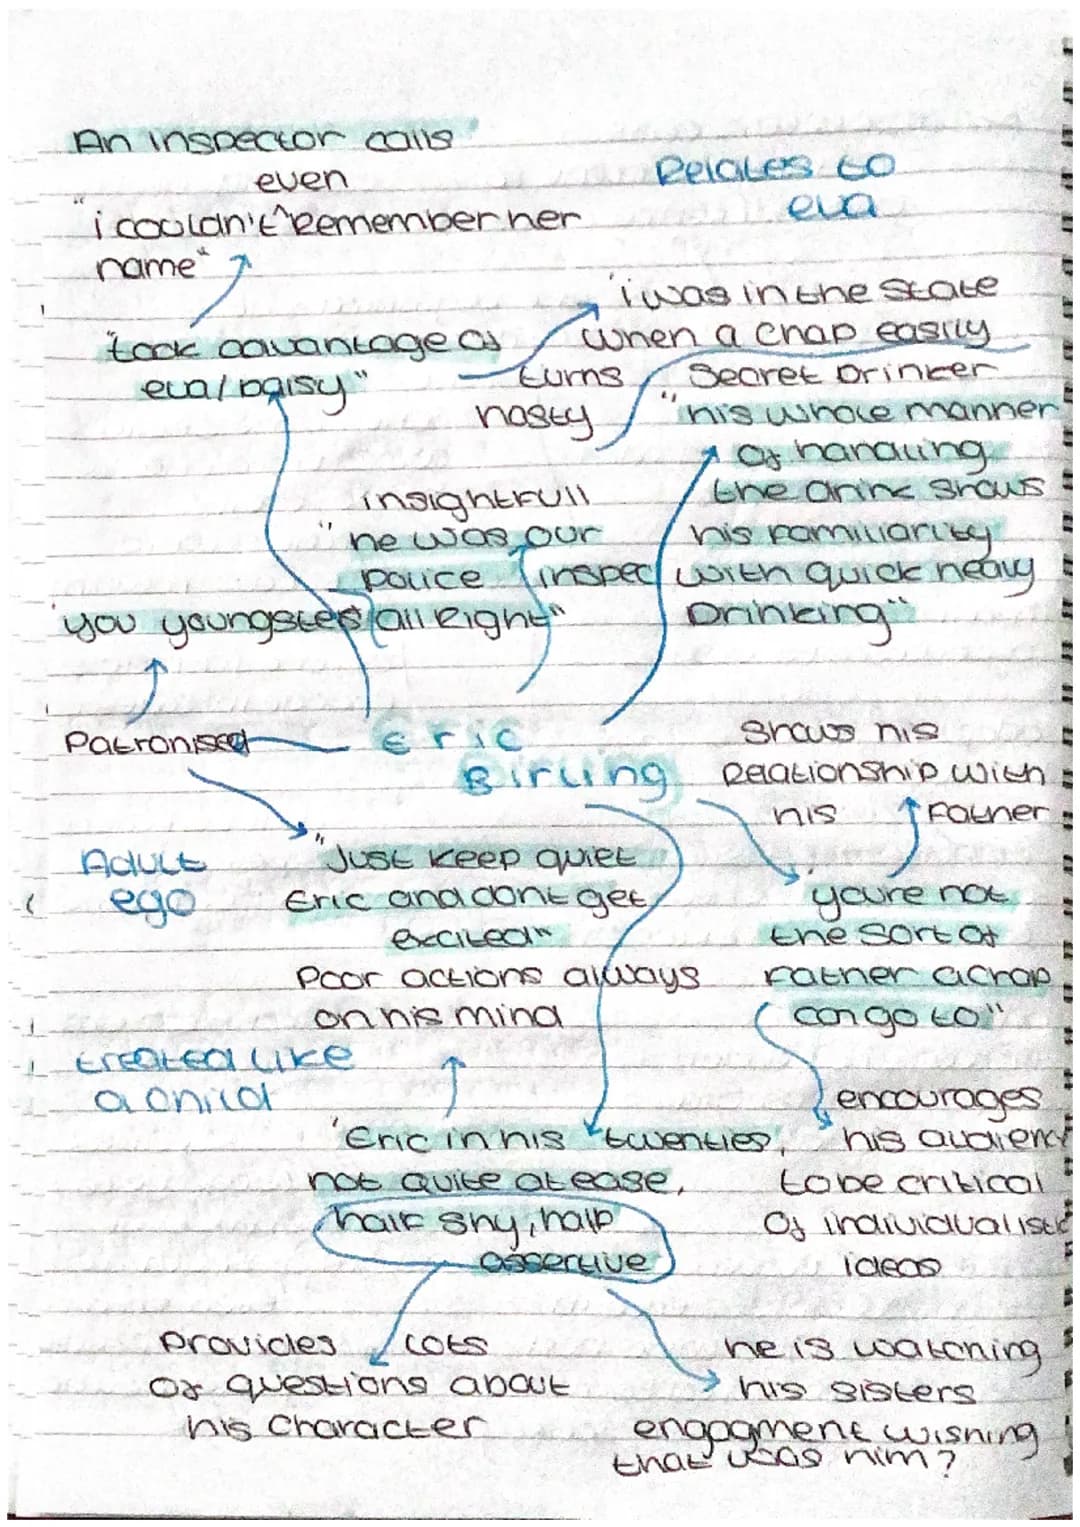 An inspector calls
even
"i couldn't ^ Remember her
name"
Relates to
eva
"took advantage of
eva/Daisy"
'i was in the state
when a chap easily
turns
nasty
Secret Drinker
"his whole manner
of handling
the drink shows
his familiarity
with quick heavy
Drinking"
insightfull
"he was our
police inspec
all Right"
'you youngsters
Patronised
Eric
Birling
Shows his
Relationship with
his Father
"Just keep quiet
Eric and dont get
excited"
Adult
ego
'youre not
the sort of
Father a chap
can go to"
Poor actions always
on his mind
treated like
a child
encourages
his audience
to be critical
of individualistic
ideas
'Eric in his twenties,
not quite at ease,
half shy, half
assertive
Provides lots
of questions about
his character
he is watching
his sisters
engagment wishing
that was him?